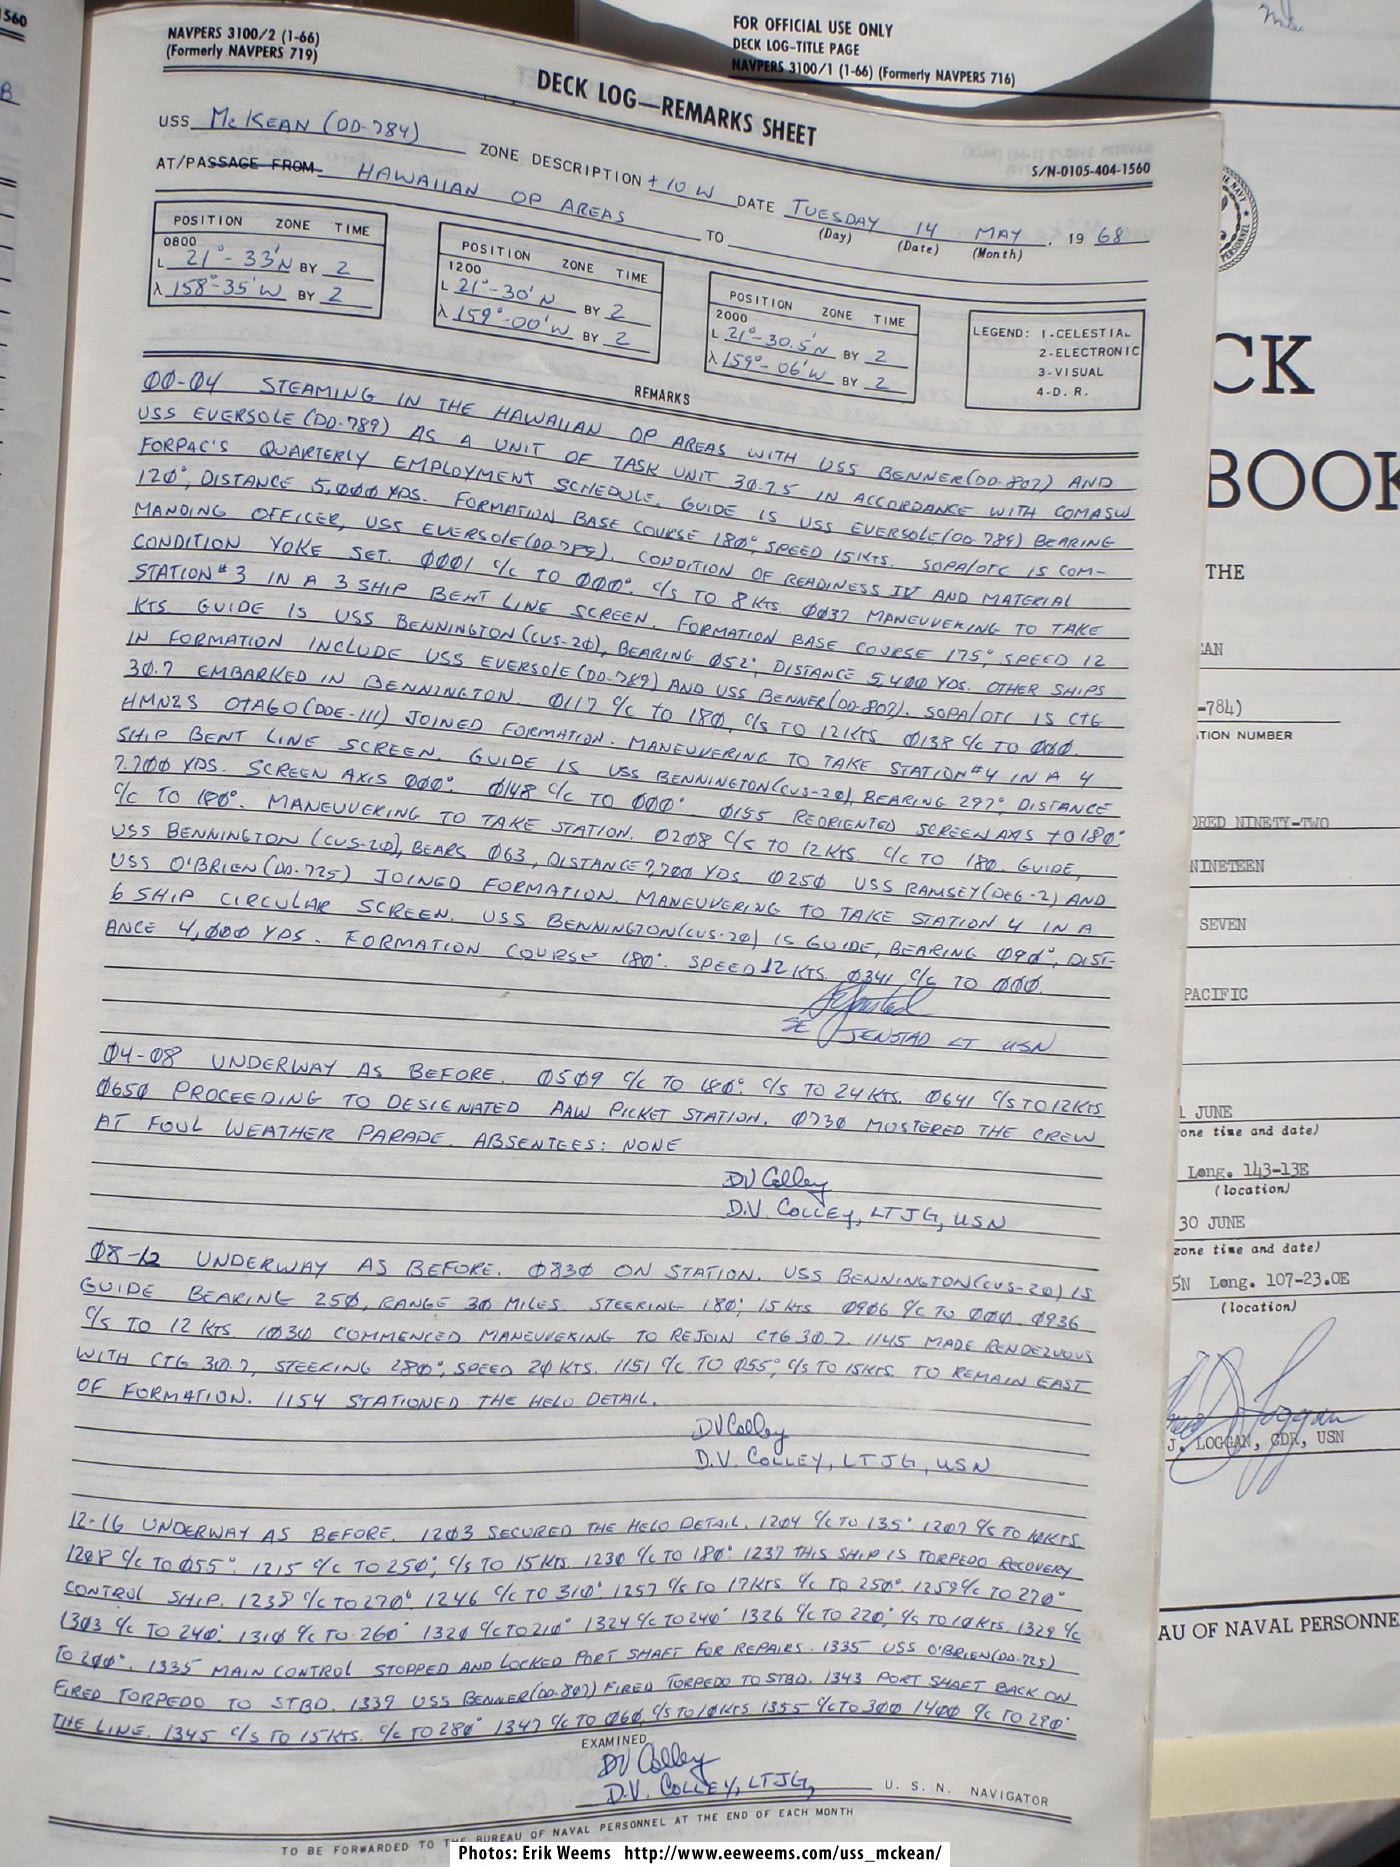 1560
B
NAVPERS 3100/2 (1-66)
(Formerly NAVPERS 719)
FOR OFFICIAL USE ONLY
DECK LOG-TITLE PAGE
NAVPERS 3100/1 (1-66) (Formerly NAVPERS 716)
DECK LOG—REMARKS SHEET
S/N-0105-404-1560
USS McKEAN (DD-784) ZONE DESCRIPTION +10 W DATE TUESDAY 14 MAY, 19 68
(Day) (Date) (Month)
AT/PASSAGE FROM HAWAIIAN OP AREAS TO
POSITION ZONE TIME
0800
L 21°-33'N BY 2
λ 158°-35'W BY 2
POSITION ZONE TIME
1200
L 21°-30'N BY 2
λ 159°-00'W BY 2
POSITION ZONE TIME
2000
L 21°-30.5'N BY 2
λ 159°-06'W BY 2
LEGEND: 1-CELESTIAL
2-ELECTRONIC
3-VISUAL
4-D. R.
REMARKS
00-04 STEAMING IN THE HAWAIIAN OP AREAS WITH USS BENNER(DD-807) AND
USS EVERSOLE(DD-789) AS A UNIT OF TASK UNIT 30.7.5 IN ACCORDANCE WITH COMASW
FORPAC'S QUARTERLY EMPLOYMENT SCHEDULE. GUIDE IS USS EVERSOLE(DD-789) BEARING
120°, DISTANCE 5,000 YDS. FORMATION BASE COURSE 180°, SPEED 15KTS. SOPA/OTC IS COM-
MANDING OFFICER, USS EVERSOLE(DD-789). CONDITION OF READINESS IV AND MATERIAL
CONDITION YOKE SET. 0001 C/C TO 000°. C/S TO 8 KTS. 0037 MANEUVERING TO TAKE
STATION #3 IN A 3 SHIP BENT LINE SCREEN. FORMATION BASE COURSE 175°, SPEED 12
KTS GUIDE IS USS BENNINGTON(CVS-20), BEARING 052°, DISTANCE 5,400 YDS. OTHER SHIPS
IN FORMATION INCLUDE USS EVERSOLE(DD-789) AND USS BENNER(DD-807). SOPA/OTC IS CTG
30.7 EMBARKED IN BENNINGTON. 0117 C/C TO 180, C/S TO 12KTS 0138 C/C TO 000.
HMNZS OTAGO(DDE-111) JOINED FORMATION. MANEUVERING TO TAKE STATION #4 IN A 4
SHIP BENT LINE SCREEN. GUIDE IS USS BENNINGTON(CVS-20), BEARING 297°, DISTANCE
7,700 YDS. SCREEN AXIS 000°. 0148 C/C TO 000°. 0155 REORIENTED SCREEN AXIS TO 180°
C/C TO 180°. MANEUVERING TO TAKE STATION. 0208 C/S TO 12KTS. C/C TO 180. GUIDE,
USS BENNINGTON (CVS-20), BEARS 063, DISTANCE 7,700 YDS 0250 USS RAMSEY(DEG-2) AND
USS O'BRIEN(DD-725) JOINED FORMATION. MANEUVERING TO TAKE STATION 4 IN A
6 SHIP CIRCULAR SCREEN. USS BENNINGTON(CVS-20) IS GUIDE, BEARING 090°, DIST-
ANCE 4,000 YDS. FORMATION COURSE 180°. SPEED 12 KTS. 0341 C/C TO 000.
SE JENSTAD LT USN
04-08 UNDERWAY AS BEFORE. 0509 C/C TO 180° C/S TO 24KTS. 0641 C/S TO 12KTS
0650 PROCEEDING TO DESIGNATED AAW PICKET STATION. 0730 MUSTERED THE CREW
AT FOUL WEATHER PARADE. ABSENTEES: NONE
DV Colley
D.V. COLLEY, LTJG, USN
08-12 UNDERWAY AS BEFORE. 0830 ON STATION. USS BENNINGTON(CVS-20) IS
GUIDE BEARING 250, RANGE 30 MILES. STEERING 180°, 15 KTS 0906 C/C TO 000. 0936
C/S TO 12 KTS 1030 COMMENCED MANEUVERING TO REJOIN CTG 30.7. 1145 MADE RENDEZVOUS
WITH CTG 30.7, STEERING 280°, SPEED 20 KTS. 1151 C/C TO 055°, C/S TO 15KTS. TO REMAIN EAST
OF FORMATION. 1154 STATIONED THE HELO DETAIL.
DV Colley
D.V. COLLEY, LTJG, USN
12-16 UNDERWAY AS BEFORE. 1203 SECURED THE HELO DETAIL. 1204 C/C TO 135°. 1207 C/S TO 10KTS
1208 C/C TO 055°. 1215 C/C TO 250°, C/S TO 15KTS. 1230 C/C TO 180° 1237 THIS SHIP IS TORPEDO RECOVERY
CONTROL SHIP. 1238 C/C TO 270° 1246 C/C TO 310° 1257 C/S TO 17KTS C/C TO 250°. 1259 C/C TO 270°
1303 C/C TO 240°. 1310 C/C TO 260° 1320 C/C TO 210° 1324 C/C TO 240° 1326 C/C TO 220°, C/S TO 10KTS. 1329 C/C
TO 200°. 1335 MAIN CONTROL STOPPED AND LOCKED PORT SHAFT FOR REPAIRS. 1335 USS O'BRIEN(DD-725)
FIRED TORPEDO TO STBD. 1339 USS BENNER(DD-807) FIRED TORPEDO TO STBD. 1343 PORT SHAFT BACK ON
THE LINE. 1345 C/S TO 15KTS. C/C TO 280° 1347 C/C TO 060, C/S TO 10KTS 1355 C/C TO 300 1400 C/C TO 290°
EXAMINED
DV Colley
D.V. COLLEY, LTJG, U. S. N. NAVIGATOR
TO BE FORWARDED TO THE BUREAU OF NAVAL PERSONNEL AT THE END OF EACH MONTH
CK
BOOK
THE
EAN
-784)
TION NUMBER
DRED NINETY-TWO
NINETEEN
SEVEN
PACIFIC
1 JUNE
one time and date)
Long. 143-13E
(location)
30 JUNE
zone time and date)
5N Long. 107-23.0E
(location)
J. LOGGAN, CDR, USN
AU OF NAVAL PERSONNE
Photos: Erik Weems http://www.eeweems.com/uss_mckean/